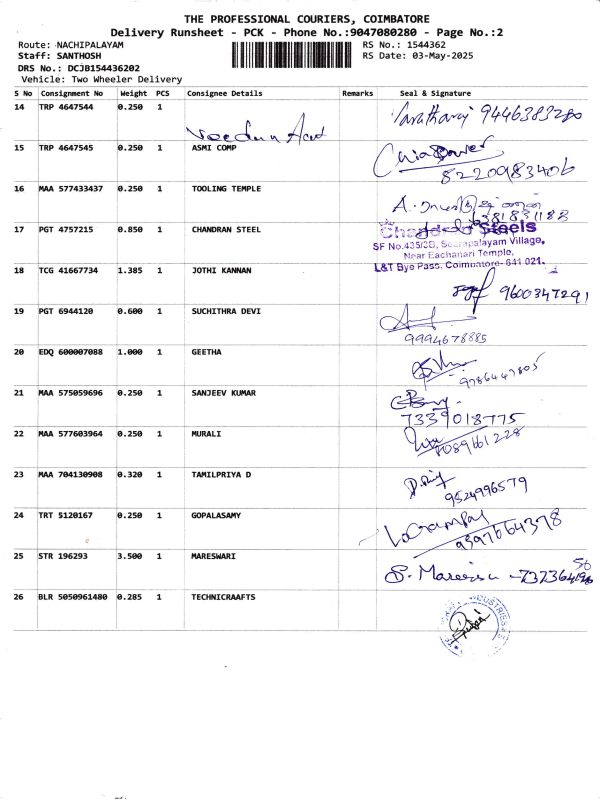 THE PROFESSIONAL COURIERS, COIMBATORE
Delivery Runsheet - PCK - Phone No.:9047080280 - Page No.:2
Route: NACHIPALAYAM RS No.: 1544362
Staff: SANTHOSH RS Date: 03-May-2025
DRS No.: DCJB154436202
Vehicle: Two Wheeler Delivery
S No Consignment No Weight PCS Consignee Details Remarks Seal & Signature
14 TRP 4647544 0.250 1 9446383280
15 TRP 4647545 0.250 1 ASMI COMP
8220983406
16 MAA 577433437 0.250 1 TOOLING TEMPLE
17 PGT 4757215 0.850 1 CHANDRAN STEEL Chandran Steels
SF No.435/3B, Seerapalayam Village,
Near Eachanari Temple,
L&T Bye Pass, Coimbatore- 641 021.
18 TCG 41667734 1.385 1 JOTHI KANNAN
9600347291
19 PGT 6944120 0.600 1 SUCHITHRA DEVI
9994678885
20 EDQ 600007088 1.000 1 GEETHA
9786447805
21 MAA 575059696 0.250 1 SANJEEV KUMAR
7339018775
22 MAA 577603964 0.250 1 MURALI
8089661228
23 MAA 704130908 0.320 1 TAMILPRIYA D
9524996579
24 TRT 5120167 0.250 1 GOPALASAMY
9397664378
25 STR 196293 3.500 1 MARESWARI
26 BLR 5050961480 0.285 1 TECHNICRAAFTS
INDUSTRIES